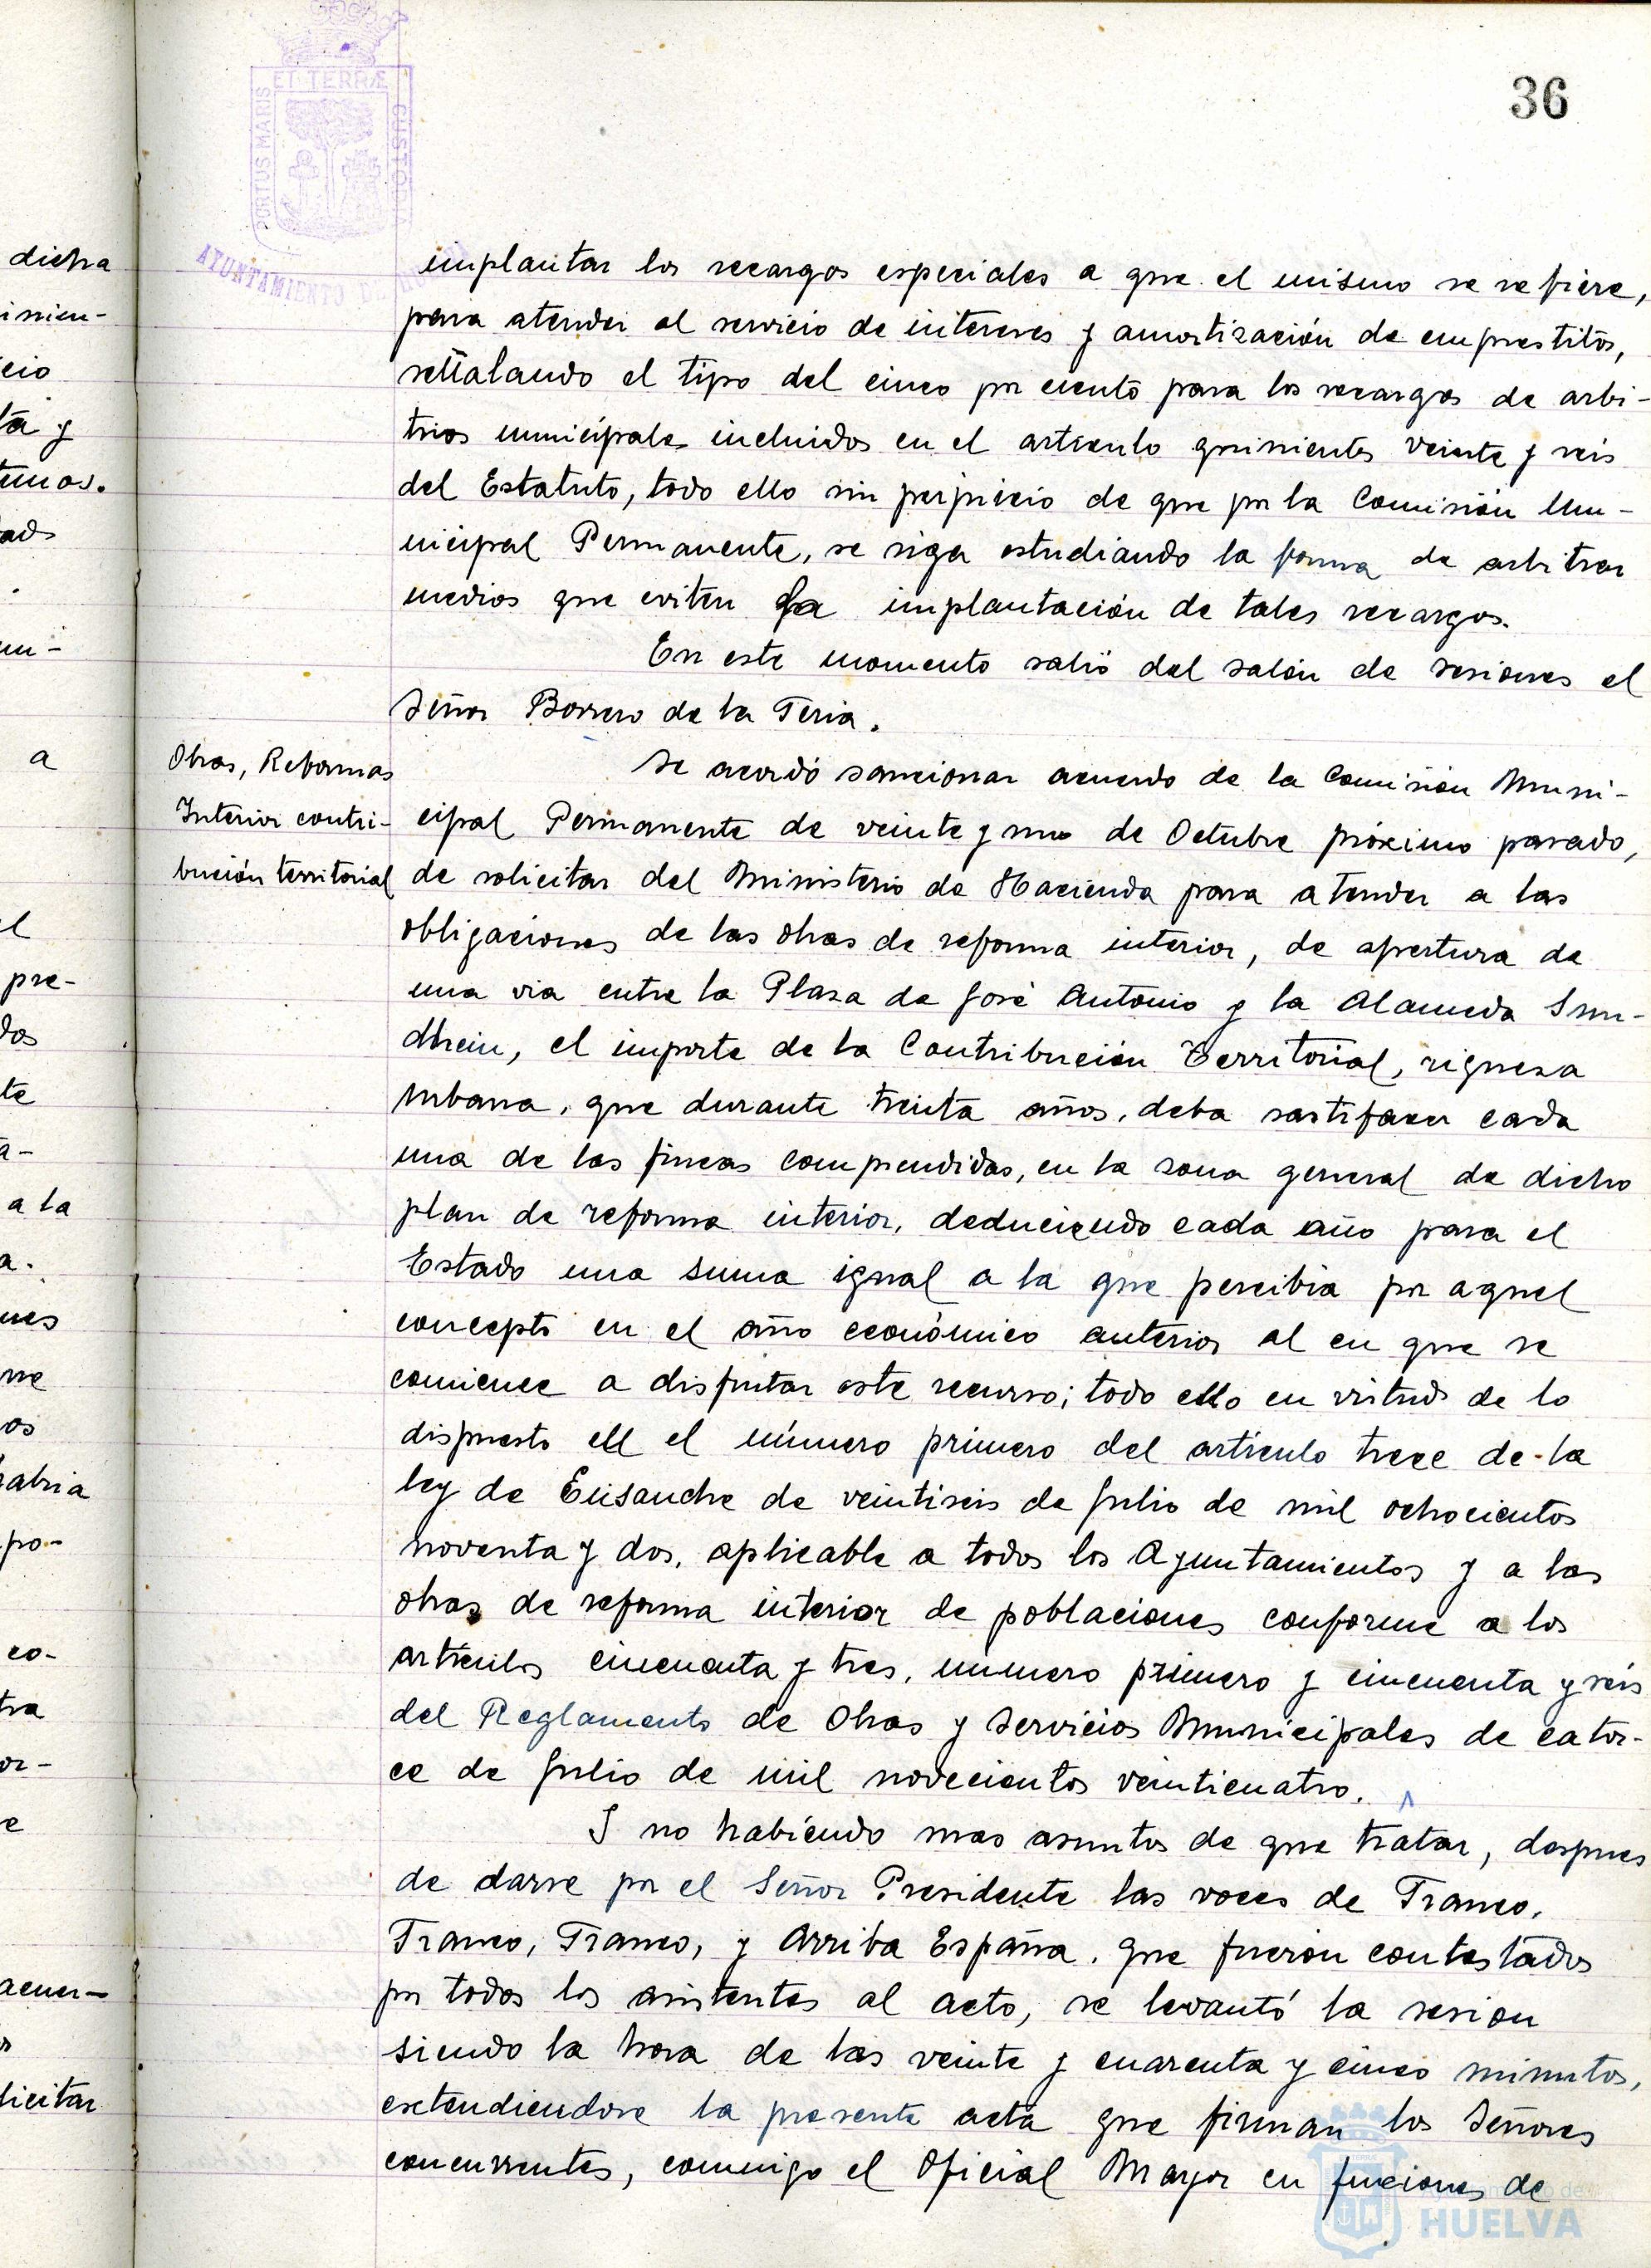 36
PORTUS MARIS ET TERRÆ CUSTODIA
AYUNTAMIENTO DE
implantar los recargos especiales a que el mismo se refiere,
para atender al servicio de intereses y amortización de emprestitos,
señalando el tipo del cinco por ciento para los recargos de arbi-
trios municipales incluidos en el artículo quinientos veinte y seis
del Estatuto, todo ello sin perjuicio de que por la Comisión Mu-
nicipal Permanente, se siga estudiando la forma de arbitrar
medios que eviten la implantación de tales recargos.
En este momento salió del salón de sesiones el
Señor Borrero de la Feria.
Obras, Reformas
Interior contri-
bución territorial
Se acordó sancionar acuerdo de la Comisión Muni-
cipal Permanente de veinte y uno de Octubre próximo pasado,
de solicitar del Ministerio de Hacienda para atender a las
obligaciones de las obras de reforma interior, de apertura de
una via entre la Plaza de José Antonio y la Alameda Sun-
dhein, el importe de la Contribución Territorial, riqueza
urbana, que durante treinta años, deba sastifacer cada
una de las fincas comprendidas, en la zona general de dicho
plan de reforma interior, deduciendo cada año para el
Estado una suma igual a la que percibia por aquel
concepto en el año económico anterior al en que se
comience a disfrutar este recurso; todo ello en virtud de lo
dispuesto en el número primero del artículo trece de la
ley de Ensanche de veintiseis de Julio de mil ochocientos
noventa y dos, aplicable a todos los Ayuntamientos y a las
obras de reforma interior de poblaciones conforme a los
artículos cincuenta y tres, numero primero y cincuenta y seis
del Reglamento de Obras y Servicios Municipales de cator-
ce de Julio de mil novecientos veinticuatro.
Y no habiendo mas asuntos de que tratar, despues
de darse por el Señor Presidente las voces de Franco,
Franco, Franco, y Arriba España, que fueron contestados
por todos los asistentes al acto, se levantó la sesion
siendo la hora de las veinte y cuarenta y cinco minutos,
extendiendose la presente acta que firman los Señores
concurrentes, conmigo el Oficial Mayor en funciones de
HUELVA